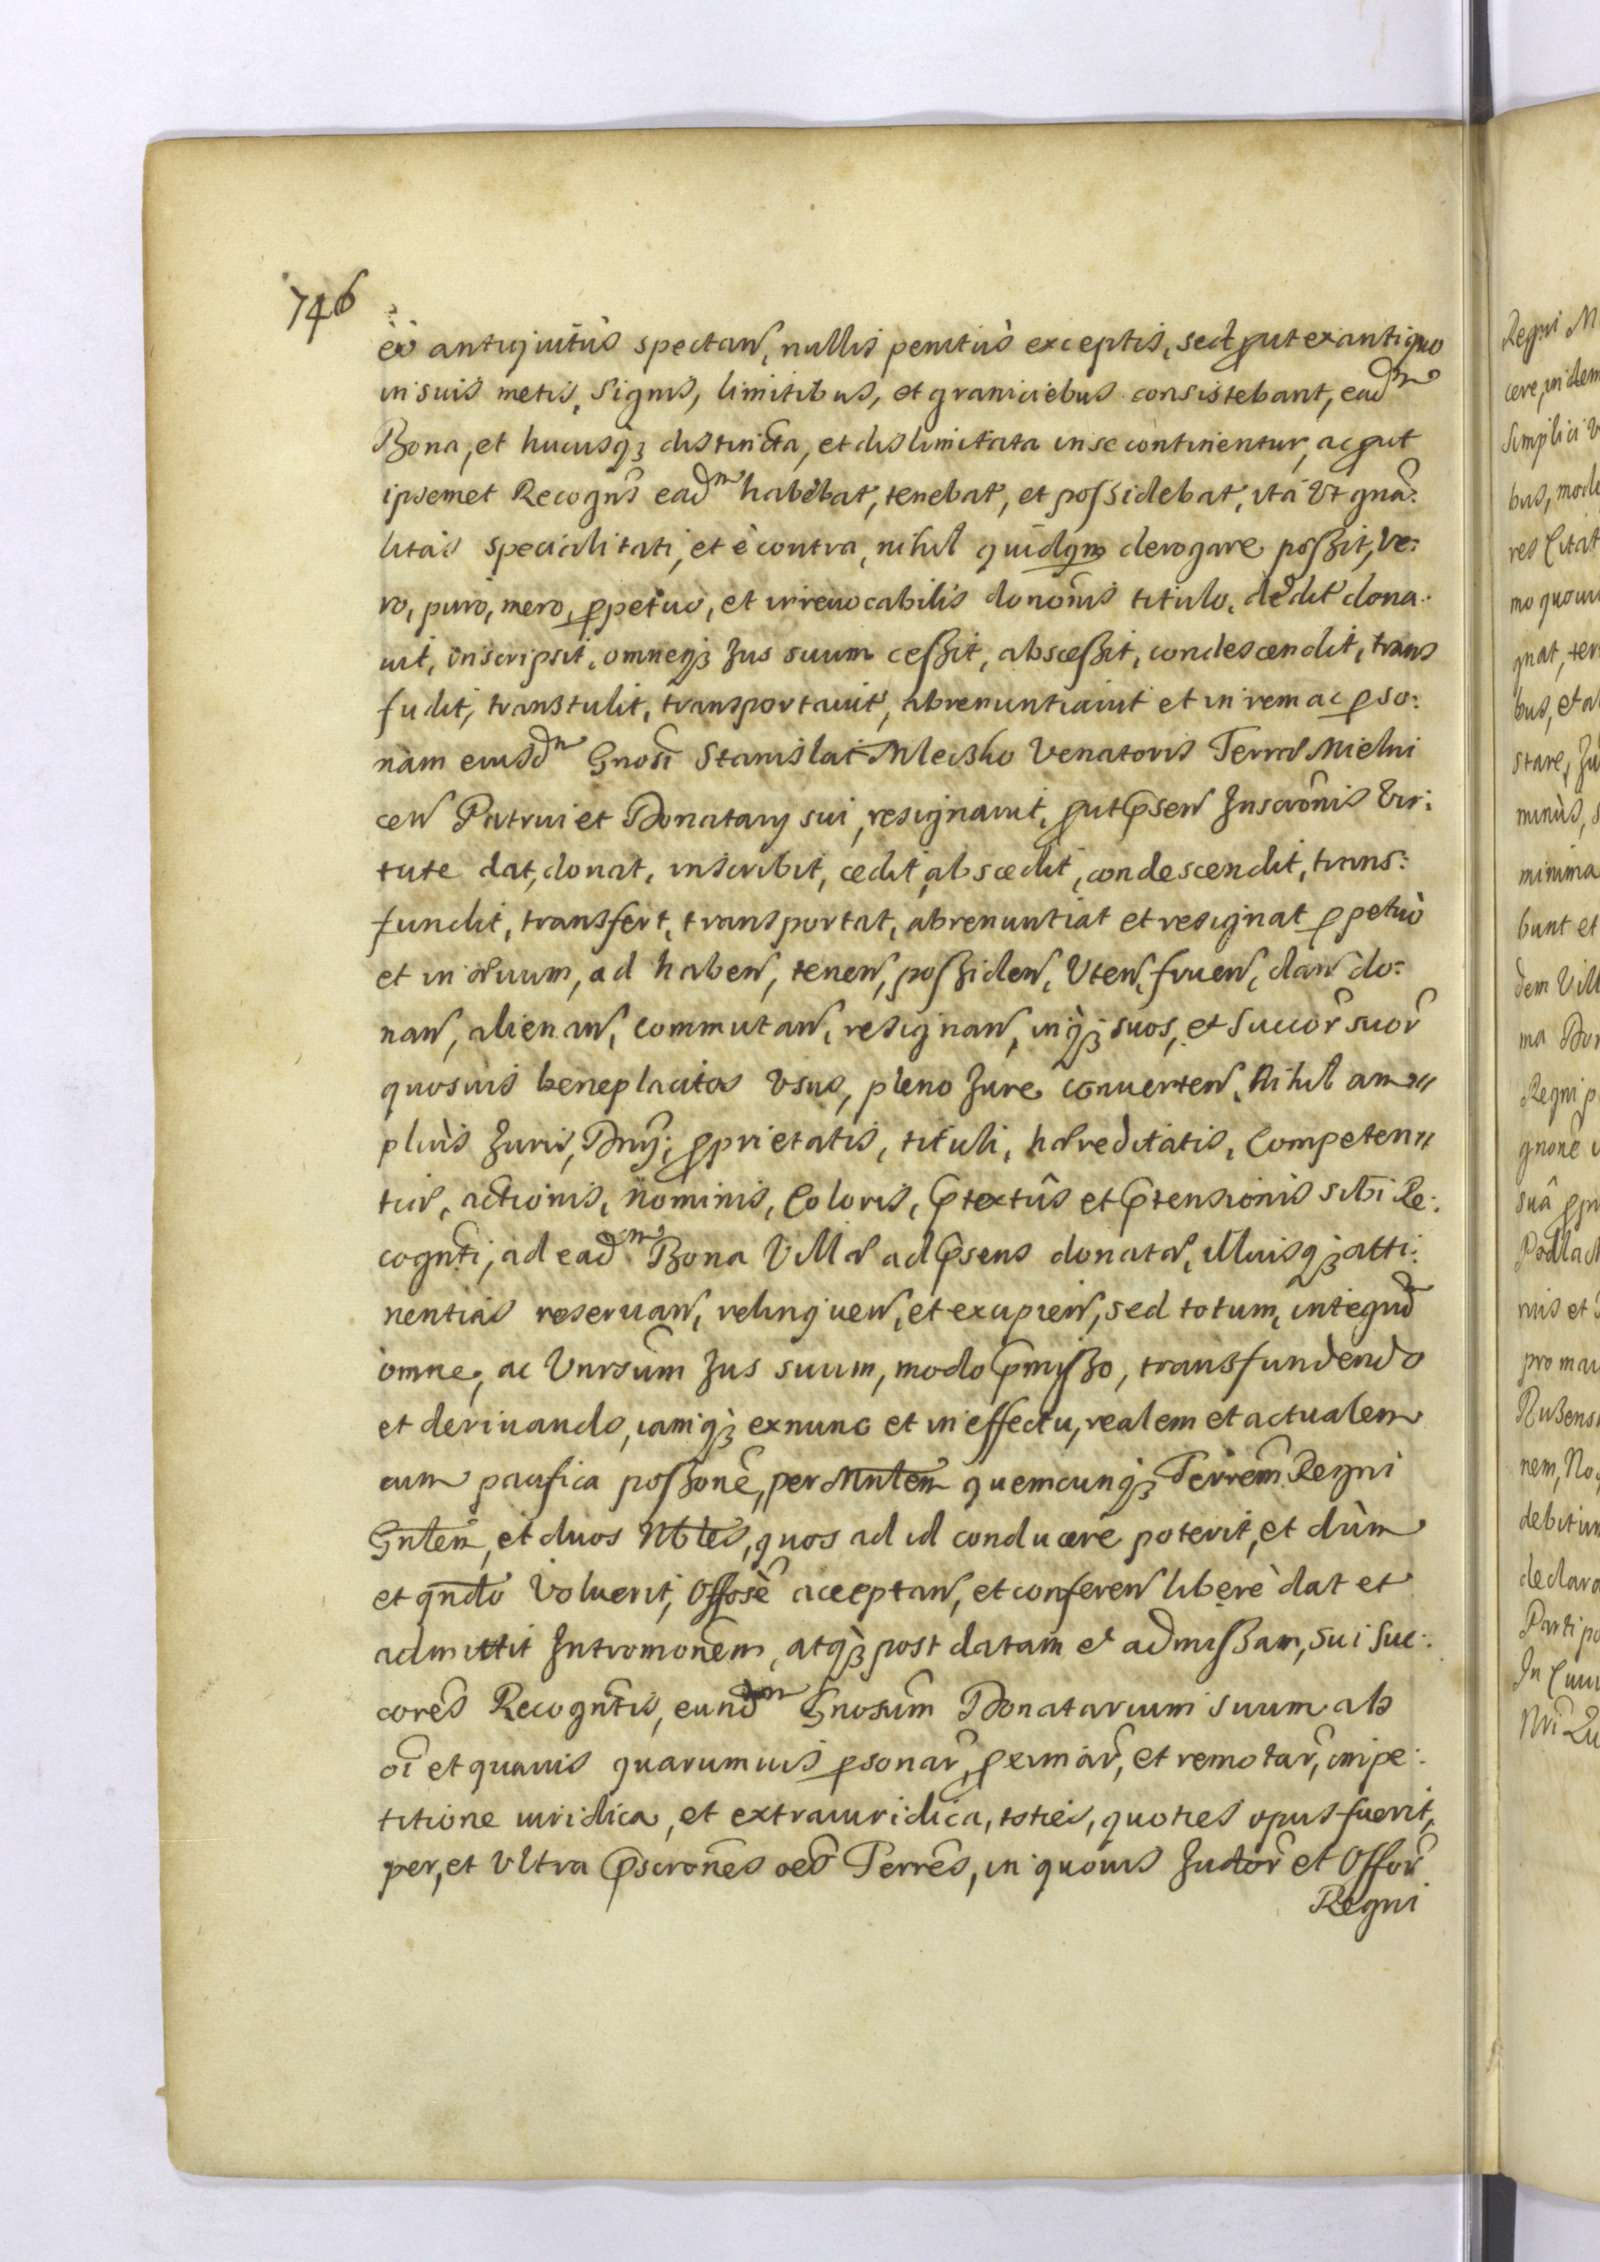 746
eò antiquitùs spectan, nullis penitùs exceptis, sed put ex antiquo
in suis metis, Signis, limitibus, et graniciebus consistebant, ead~m
Bona, et hucusq3 distincta, et dislimitata in se continentur, ac put
ipsemet Recogn̄s ead~m habebat, tenebat, et possidebat, ita Vt gnā:
litas specialitati, et è contra, nihil quidqm derogare possit, Ve:
ro, puro, mero, ppetuo, et irreuocabilis donōnis titulo, dedit dona:
uit, inscripsit, omneq3 Jus suum cessit, abscessit, condescendit, trans
fudit, transtulit, transportauit, abrenuntiauit et in rem ac pso:
nam eiusd~m Gnosi Stanislai Mleczko Venatoris Terræ Mielni
cen Patrui et Donatarij sui, resignauit, put psen Inscrōnis Vir:
tute dat, donat, inscribit, cedit, abscedit, condescendit, trans:
fundit, transfert, transportat, abrenuntiat et resignat ppetuò
et in æuum, ad haben, tenen, possiden, Vten, fruen, dan do:
nan, alienan, commutan, resignan, inq3 suos, et Succor̄ suor̄
quosuis beneplacitos Vsus, pleno Jure conuerten, Nihil am"
pliùs Juris, Dnij, pprietatis, tituli, hæreditatis, Competen"
tiæ, actionis, nominis, Coloris, ptextûs et ptensionis sibi Re:
cognti, ad ead~m Bona Villæ ad psens donatæ, illiusq3 atti:
nentias reseruan, relinquen, et excipien, sed totum, integrū
omne, ac Vnrsum Jus suum, modo pmisso, transfundendo
et deriuando, iamq3 ex nunc et in effectu, realem et actualem
cum pacifica possonē, per Mnlem quemcunq3 Terrēm Regni
Gnlem, et duos Nbles, quos ad id conducere poterit, et dùm
et qndo Voluerit, Offosè acceptan, et conferen liberè dat et
admittit Intromonem, atq3 post datam et admissam, sui Suc:
cores Recogntis, eund~m Gnosum Donatarium suum ab
oi et quauis quarumuis psonar̄, pximar̄, et remotar̄, impe:
titione iuridica, et extraiuridica, toties, quoties opus fuerit,
per, et Vltra pscronēs oes Terrēs, in quouis Judor̄ et Offor̄
Regni